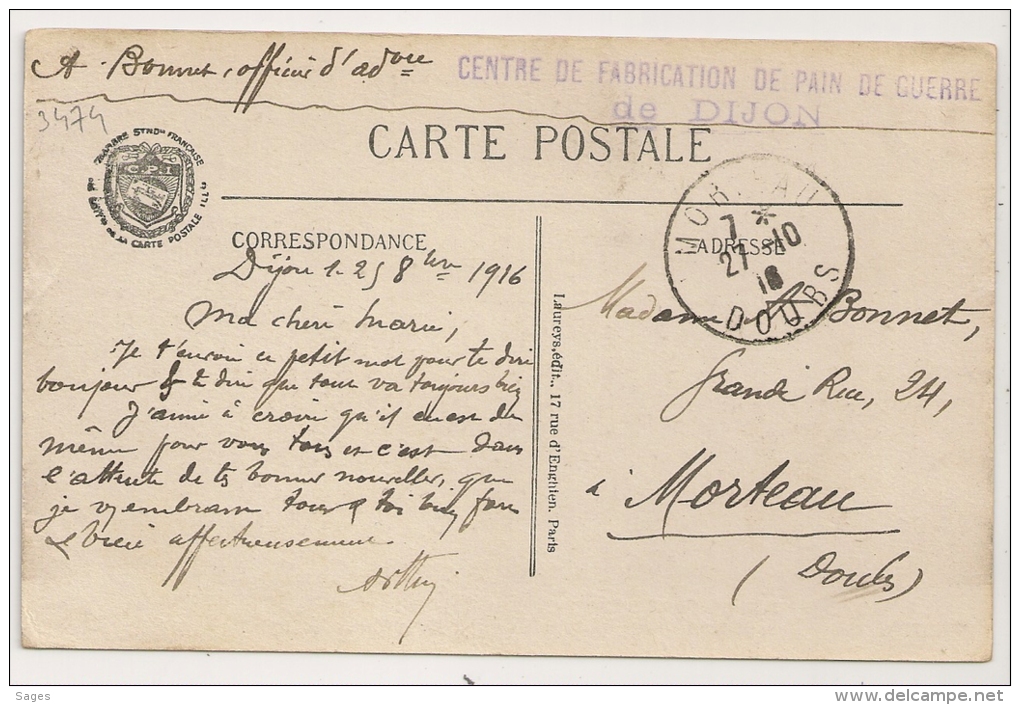 A. Bonnet, officier d'adon
CENTRE DE FABRICATION DE PAIN DE GUERRE
de DIJON
3474
CARTE POSTALE
CHAMBRE SYNDle FRANÇAISE
C.P.I
CARTE POSTALE ILLée
MORTEAU
7 *
27 -10
16
DOUBS
CORRESPONDANCE
ADRESSE
Dijon le 25 8bre 1916
Ma chère Marie,
Je t'envoie ce petit mot pour te dire
bonjour & te dire que tout va toujours bien
J'aime à croire qu'il en est de
même pour vous tous et c'est dans
l'attente de tes bonnes nouvelles, que
je vs embrasse tous & toi bien fort
& bien affectueusement.
Arthur
Laureys, édit.., 17 rue d'Enghien, Paris
Madame A. Bonnet,
Grande Rue, 24,
à Morteau
(Doubs)
Sages
www.delcampe.net